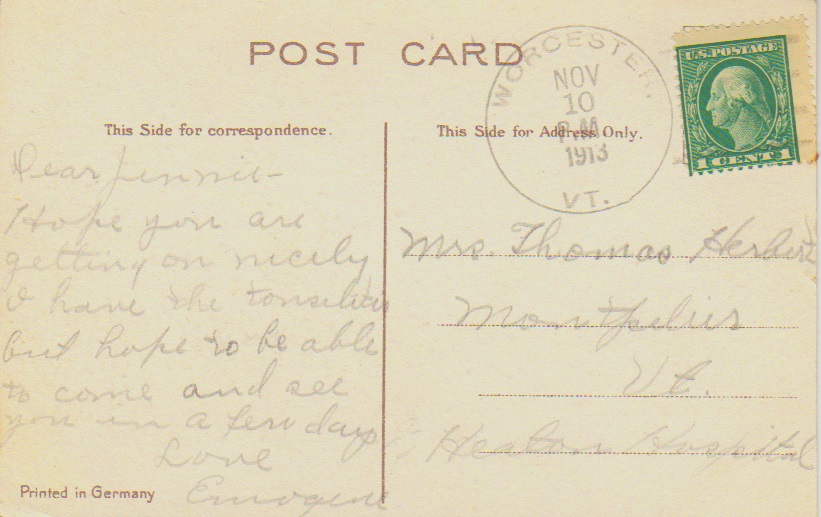 POST CARD
WORCESTER.
NOV
10
P.M.
1913
VT.
U.S. POSTAGE
1 CENT 1
This Side for correspondence.
This Side for Address Only.
Dear Jennie-
Hope you are
getting on nicely
I have the tonsilitis
but hope to be able
to come and see
you in a few days
Love
Emogene
Mrs. Thomas Herbert
Montpelier
Vt.
Heaton Hospital
Printed in Germany